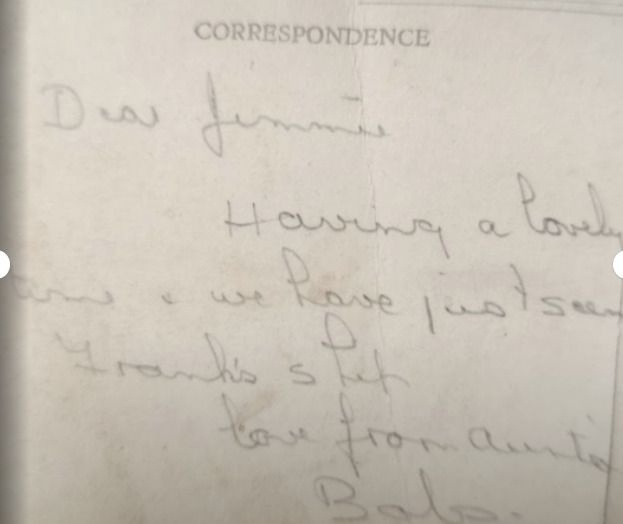 CORRESPONDENCE
Dear Jimmie
Having a lovely
time & we have just seen
Frank's ship
love from Auntie
Babs.